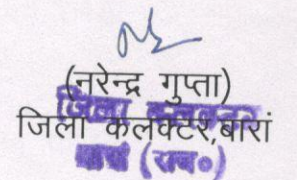 (नरेन्द्र गुप्ता)
जिला कलक्टर
जिला कलक्टर,बारां
बारां (राज०)